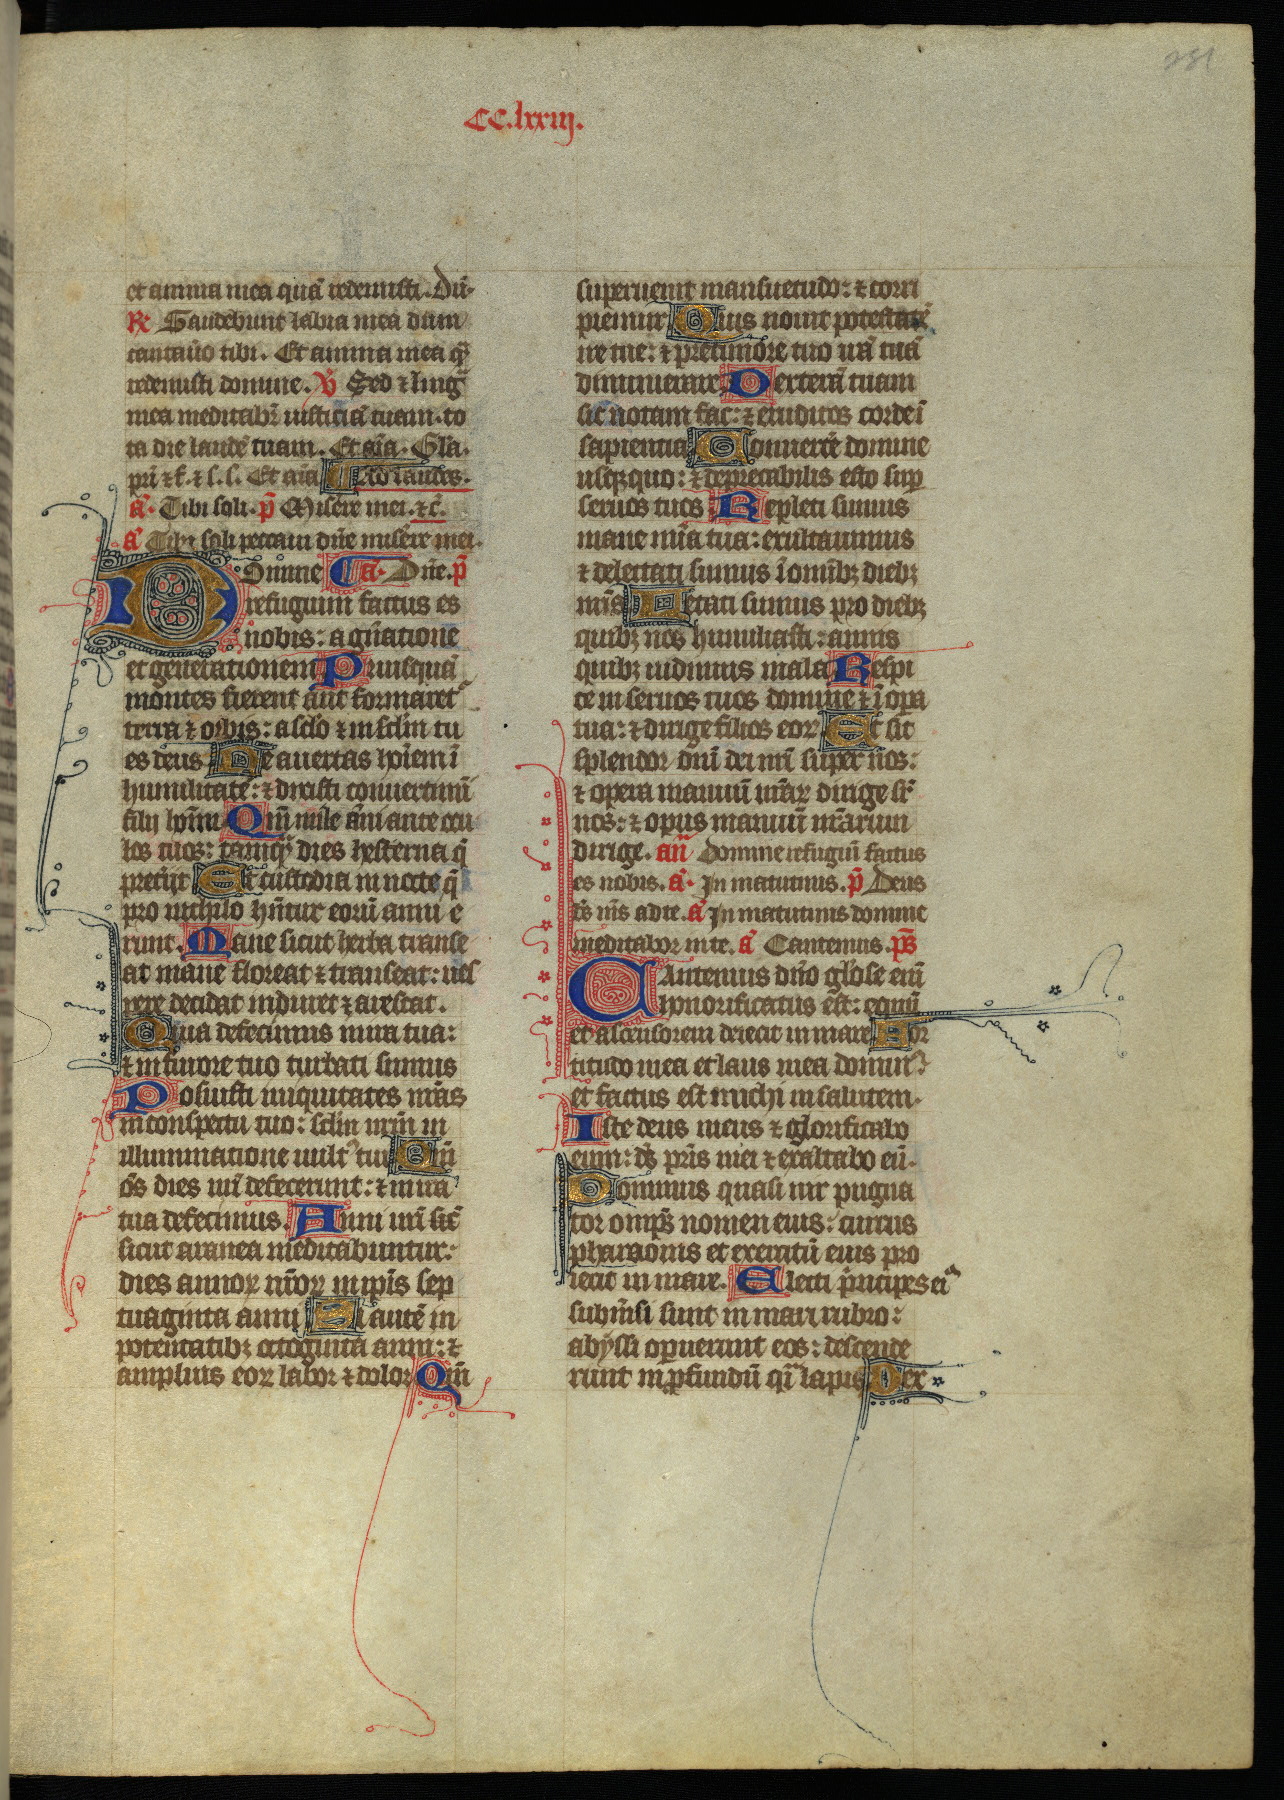 231
CC.lxxiij.
et anima mea quā redemisti. Dū.
R̄ Gaudebunt labia mea dum
cantaūo tibi. Et anima mea qͣ̄
redemisti domine. V̄ Sed ⁊ lingͣ
mea meditabr̄ iusticiā tuam. to
ta die laudē tuam. Et aīa. Gla.
pr̄i ⁊ f. ⁊ s. s. Et aīa Ad laudes.
a͛. Tibi soli. p̄ Misere mei. ⁊c̄.
a͛ Tibi soli peccaui dn̄e miserere mei.
Domine Ca͛. Dn̄e. p̄
refugium factus es
nobis: a gn̄atione
et generationem Priusquā
montes fierent aut formaretͬ
terra ⁊ orbis: a sclo ⁊ in sclm̄ tu
es deus Ne auertas hoīem ī
humilitatē: ⁊ dixisti conuertimī
filij hoīm Qm̄ mille ām ante ocu
los tuos: tamqͣ̄ dies hesterna q̄
preterijt Et custodia in nocte q̄
pro nichilo hn̄tur eorū anni e
runt. Mane sicut herba transe
at mane floreat ⁊ transeat: ues
pere decidat induret ⁊ arescat.
Quia defecimus in ira tua:
⁊ in furore tuo turbati sumus
Posuisti iniquitates nr̄as
in conspectu tuo: sclm̄ nrm̄ in
illuminatione uultꝰ tui Qm̄
oēs dies nr̄i defecerunt: ⁊ in ira
tua defecimus. Anni nr̄i sic̄
sicut aranea meditabuntur:
dies annoꝝ nr̄oꝝ in ipīs sep
tuaginta anni Si autē in
potentatibꝫ octoginta anni: ⁊
amplius eoꝝ labor ⁊ dolor Qm̄
superuenit mansuetudo: ⁊ corri
piemur Quis nouit potestatē
ire tue: ⁊ pre timore tuo irā tuā
dinumerare Dexterā tuam
sic notam fac: ⁊ eruditos corde ī
sapientia Conuertē domine
usqꝫquo: ⁊ deprecabilis esto suꝑ
seruos tuos Repleti sumus
mane mīa tua: exultauimus
⁊ delectati sumus ī omībꝫ diebꝫ
nr̄is Letati sumus pro diebꝫ
quibꝫ nos humiliasti: annis
quibꝫ uidimus mala Respi
ce in seruos tuos domine ⁊ ī oꝑa
tua: ⁊ dirige filios eoꝝ Et sit
splendor dn̄i dei nr̄i super nos:
⁊ opera manuū nr̄aꝝ dirige sr̄
nos: ⁊ opus manuū nr̄arum
dirige. an̄ Domine refugiū factus
es nobis. a͛. In matutinis. p̄ Deus
ds̄ ms̄ ad te. a͛ In matutinis domine
meditabor in te. a͛ Cantemus. ps̄
Cantemus dn̄o glōse eni̅
honorificatus est: equū
et ascensorem deiecit in mare For
titudo mea et laus mea dominꝰ:
et factus est michi in salutem.
Iste deus meus ⁊ glorificabo
eum: ds̄ pr̄is mei ⁊ exaltabo eū.
Dominus quasi uir pugna
tor omps̄ nomen eius: currus
pharaonis et exercitū eius pro
iecit in mare. Electi principes eiꝰ
subm̄si sunt in mari rubro:
abyssi operuerunt eos: descende
runt in ꝓfundū qͣi lapis Dex